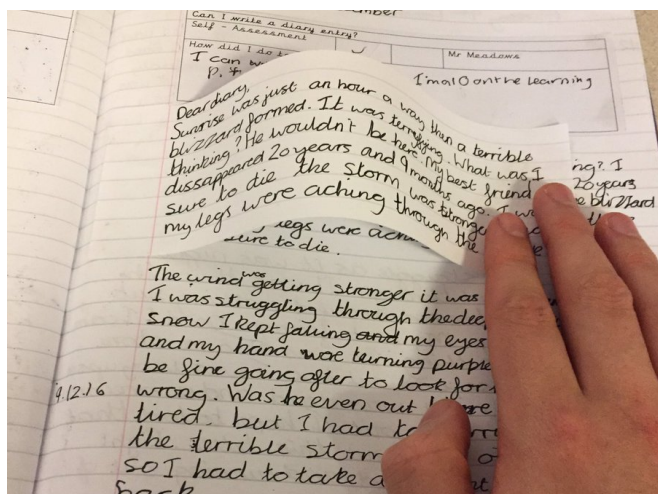 mber
Can I write a diary entry?
Self - Assessment
How did I do
Mr Meadows
I can
I'm a 10 on the learning
P. 4
Dear diary,
Sunrise was just an hour a way than a terrible
blizzard formed. It was terrifying. What was I
thinking? He wouldn't be here. My best friend
dissappeared 20 years and 9 months ago. I
sure to die the storm was stronge
my legs were aching through the
ng?. I
20 years
e blizzard
legs were ach
sure to die.
The wind was getting stronger it was
I was struggling through the dee
snow I kept falling and my eyes
and my hand were turning purple
be fine going after to look for
9.12.16
wrong. Was he even out here
tired, but I had to
the terrible storm
so I had to take a
back